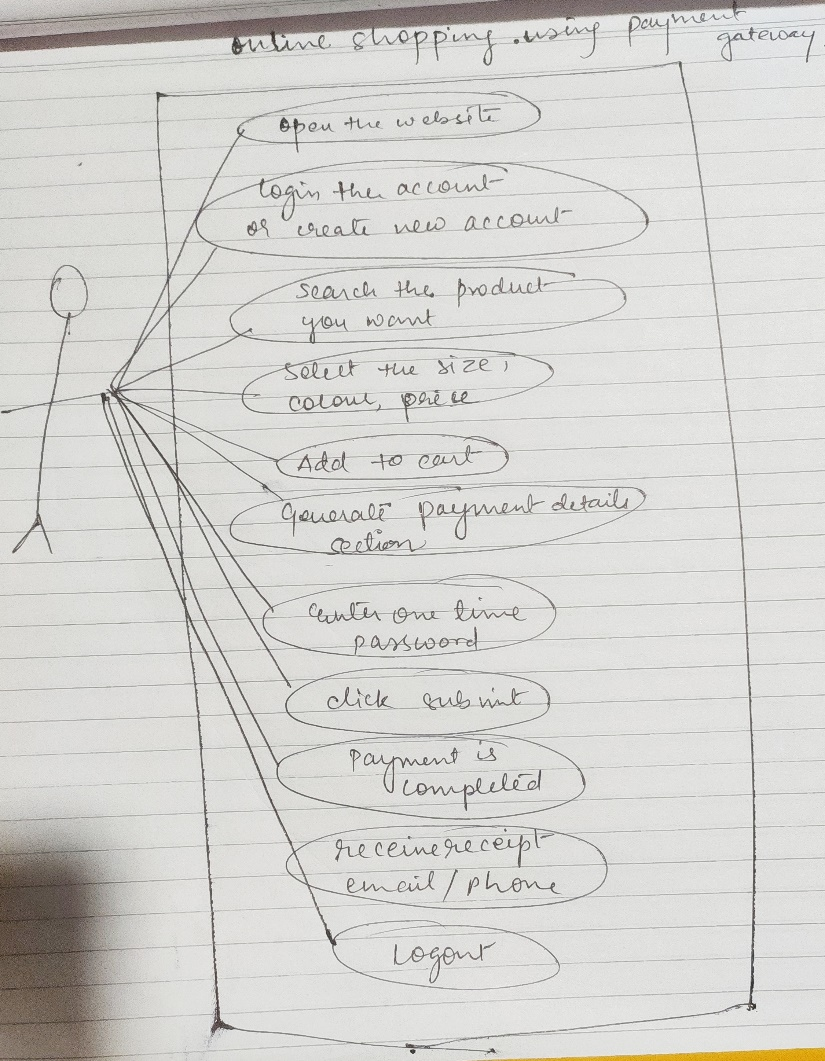 online shopping using payment
gateway
open the website
login the account
or create new account
search the product
you want
Select the size,
colour, price
Add to cart
Generate payment details
section
enter one time
password
click submit
Payment is
completed
receive receipt
email / phone
Logout